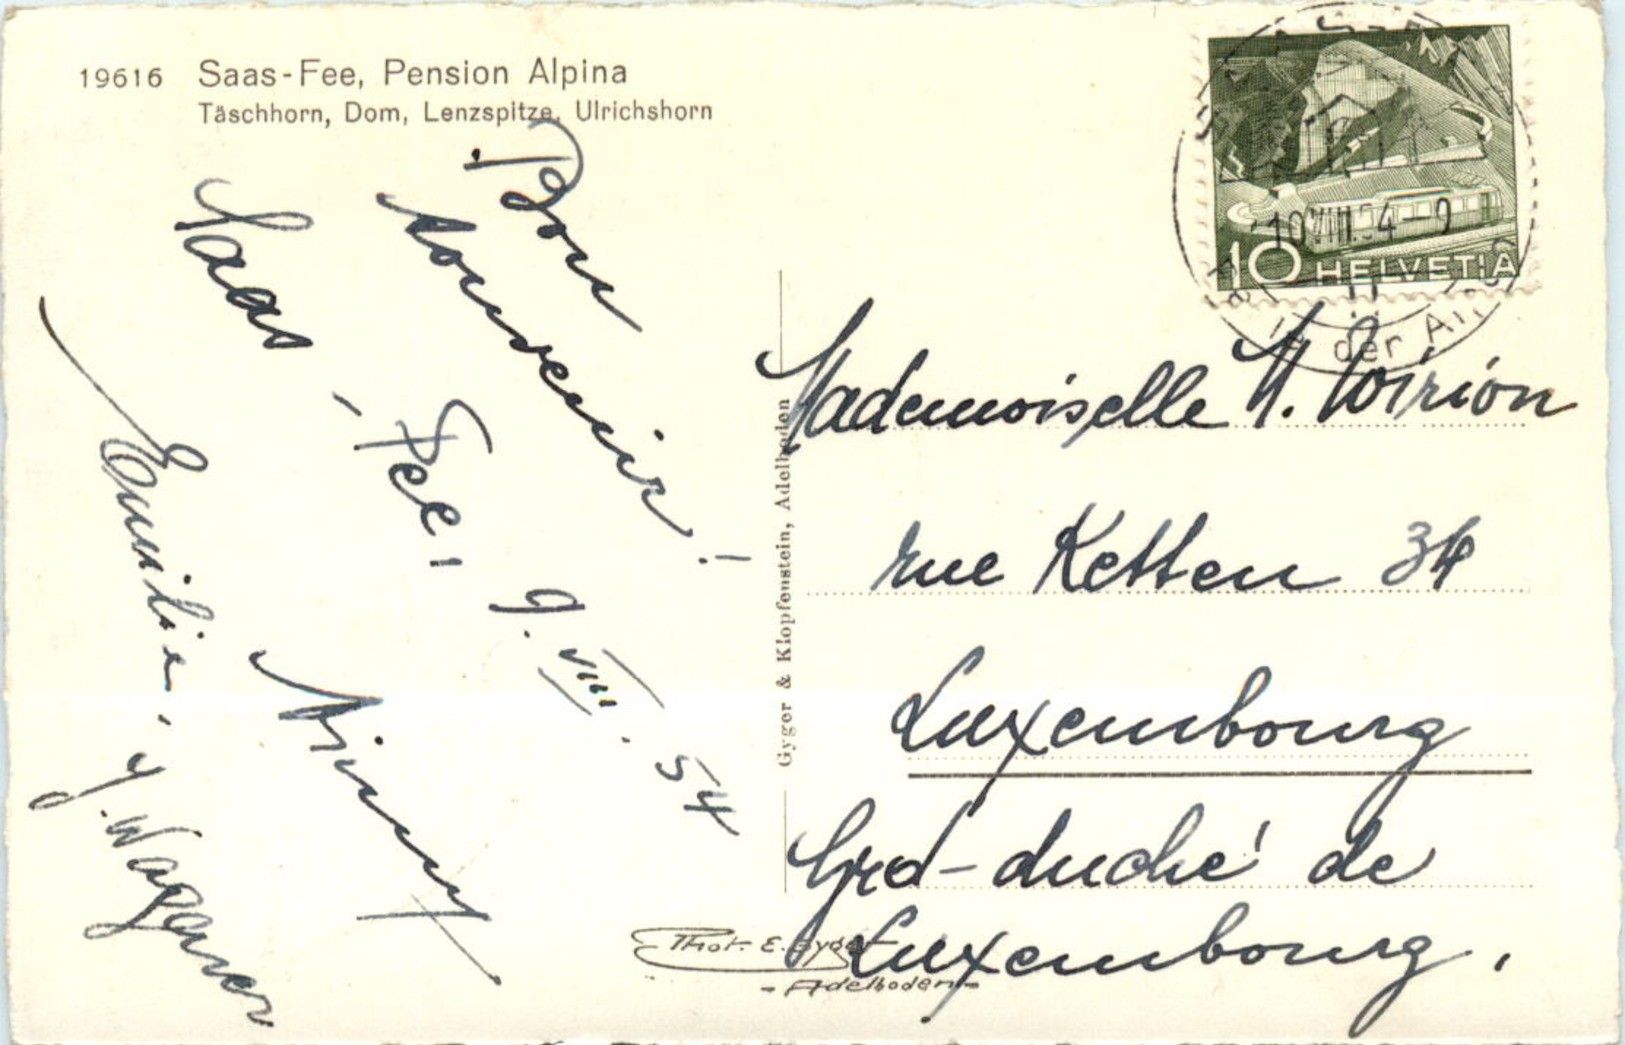 19616 Saas-Fee, Pension Alpina
Täschhorn, Dom, Lenzspitze, Ulrichshorn
Bon
souvenir!
Saas-Fee, 9.VIII.54
Aimut
Emilie, y. Wagener
Gyger & Klopfenstein, Adelboden
Phot. E. Gyger
-Adelboden-
10 HELVETIA
10.VIII.54-9
Perle der Alpen
Mademoiselle M. Wirion
rue Ketten 34
Luxembourg
Grd-duché de
Luxembourg.